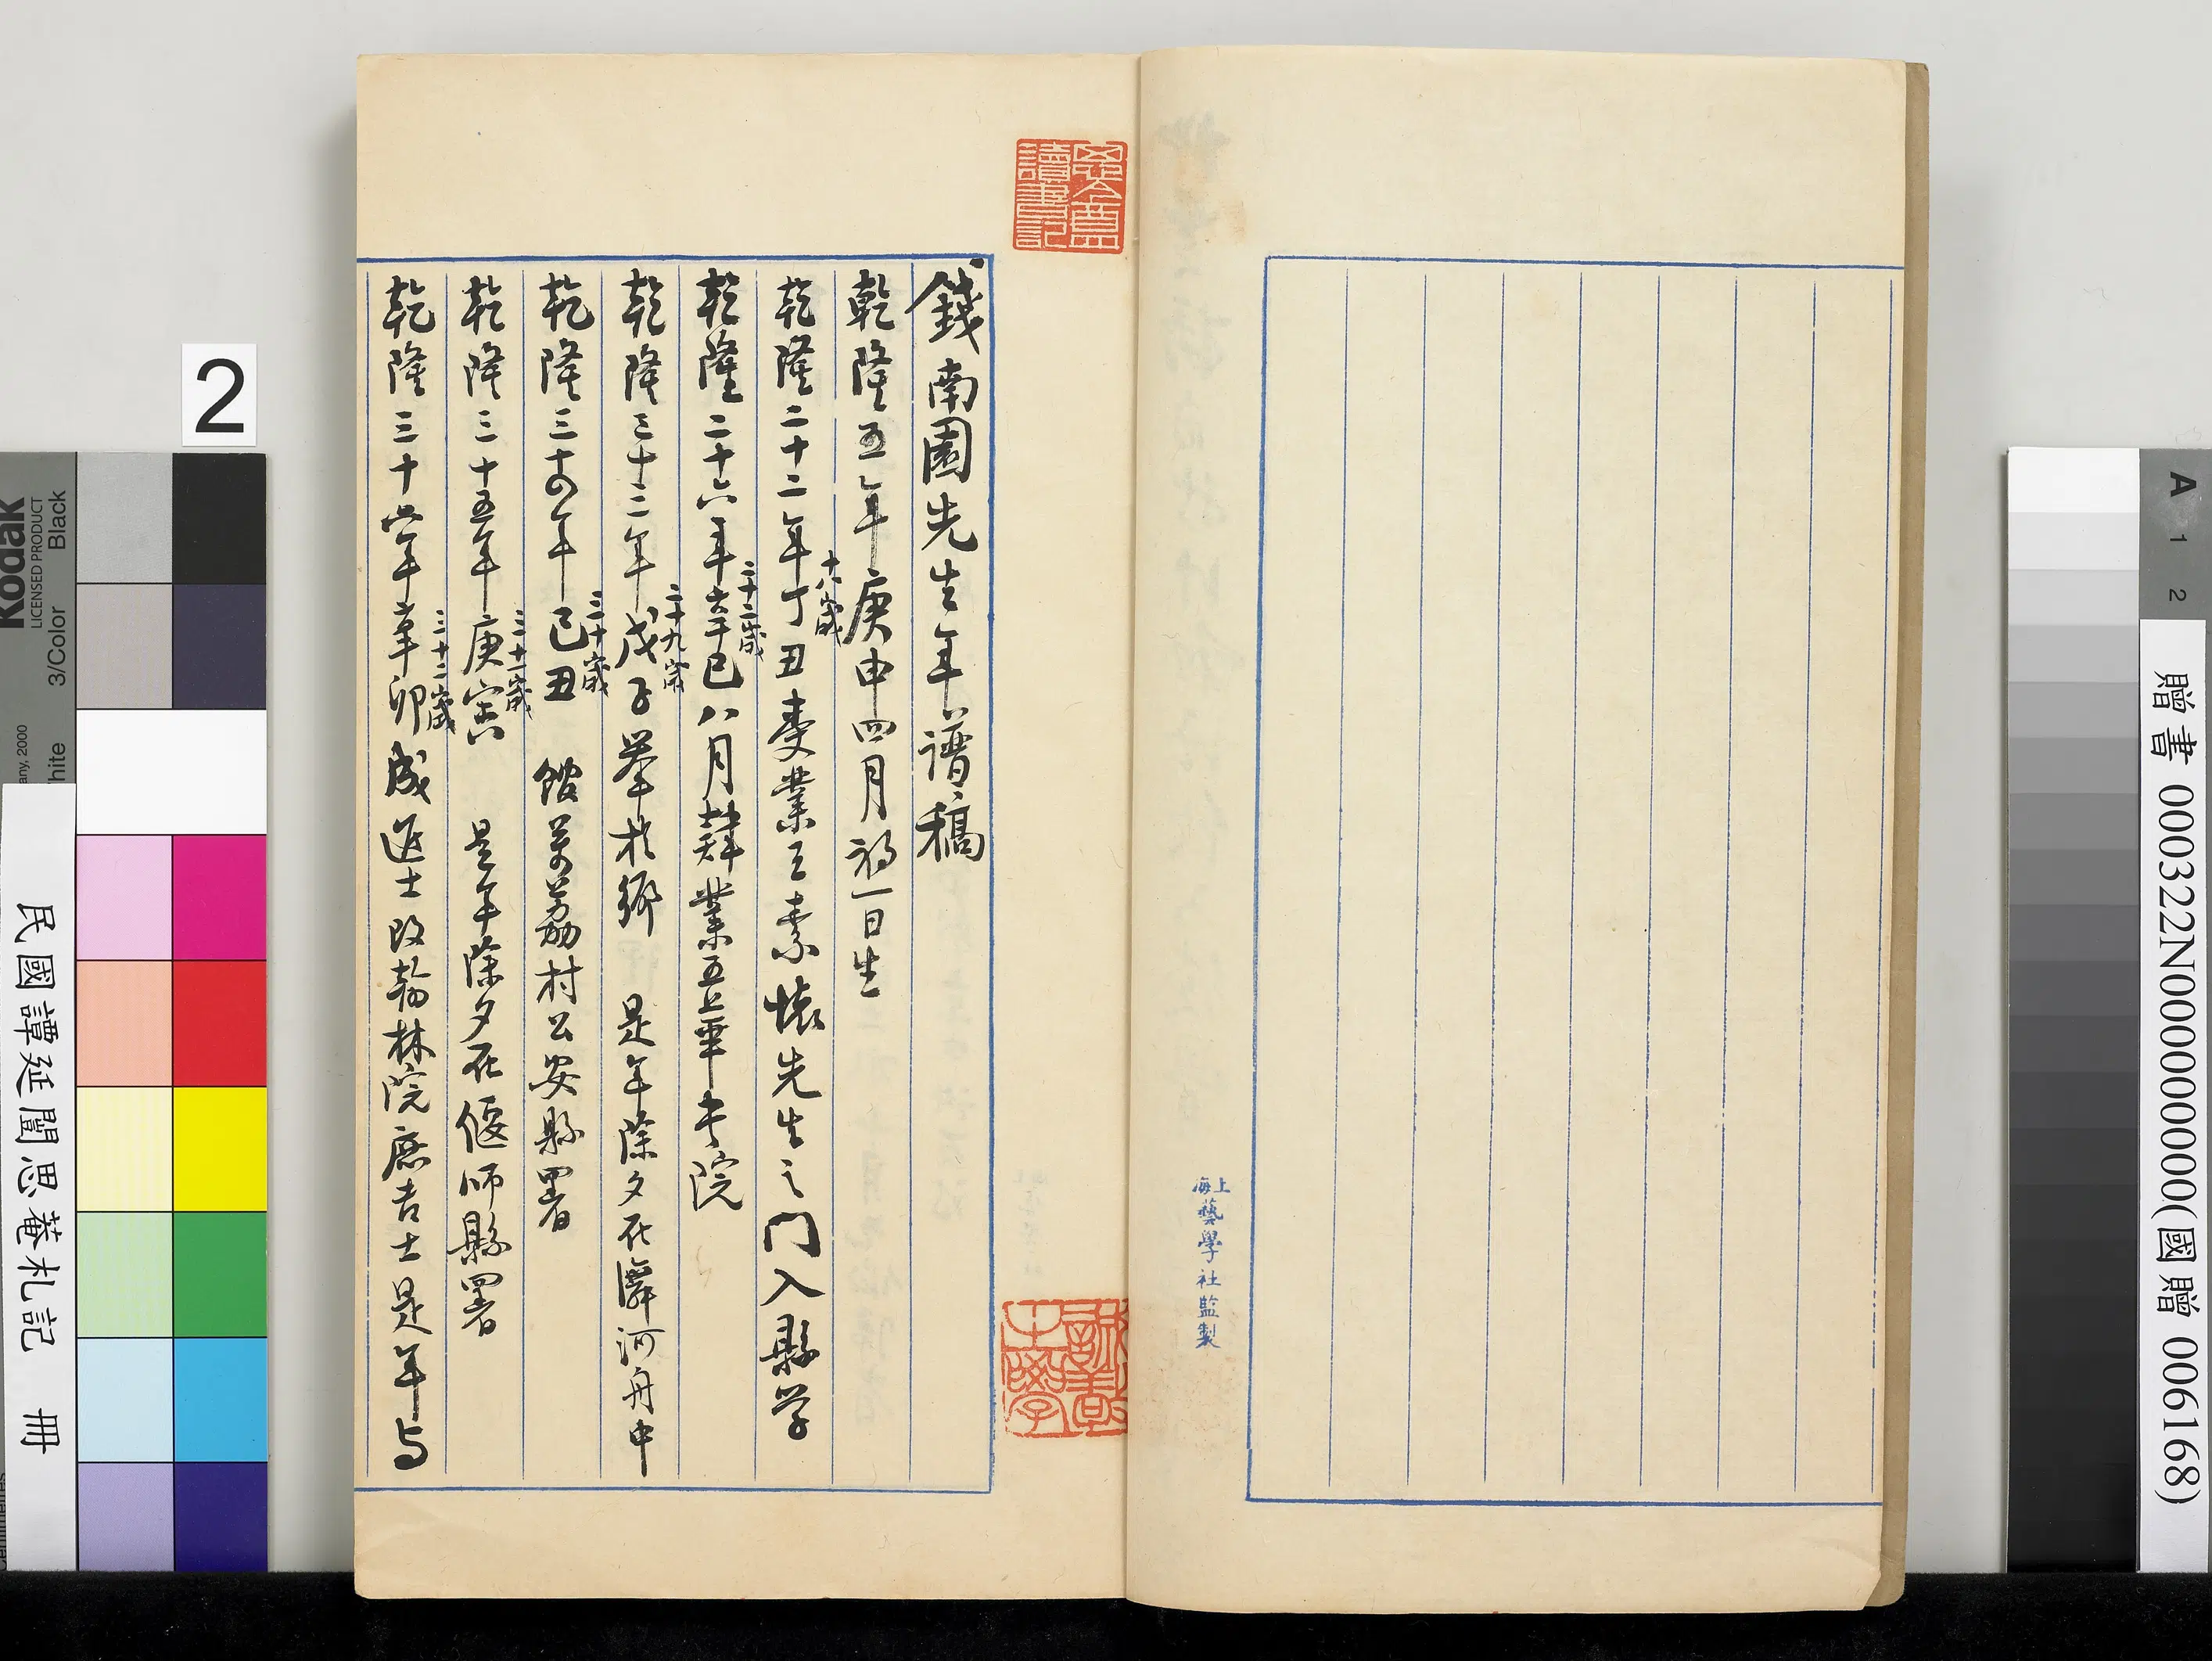 錢南園先生年譜稿
乾隆五年庚申四月初一日生
乾隆二十二年丁丑受業王素懷先生之门入縣学
十八歲
乾隆二十六年辛巳八月肄業五華书院
二十二歲
乾隆三十三年戊子举於鄉 是年除夕在滹河舟中
二十九歲
乾隆三十四年己丑 館萬荔村公安縣署
三十歲
乾隆三十五年庚寅 是年除夕在偃师縣署
三十一歲
乾隆三十六年辛卯成進士改翰林院庶吉士是年与
三十二歲
上海藝學社監製
2
Kodak
LICENSED PRODUCT
3/Color
Black
民國譚延闓思菴札記 冊
A
1
2
贈書 000322N000000000(國贈 006168)